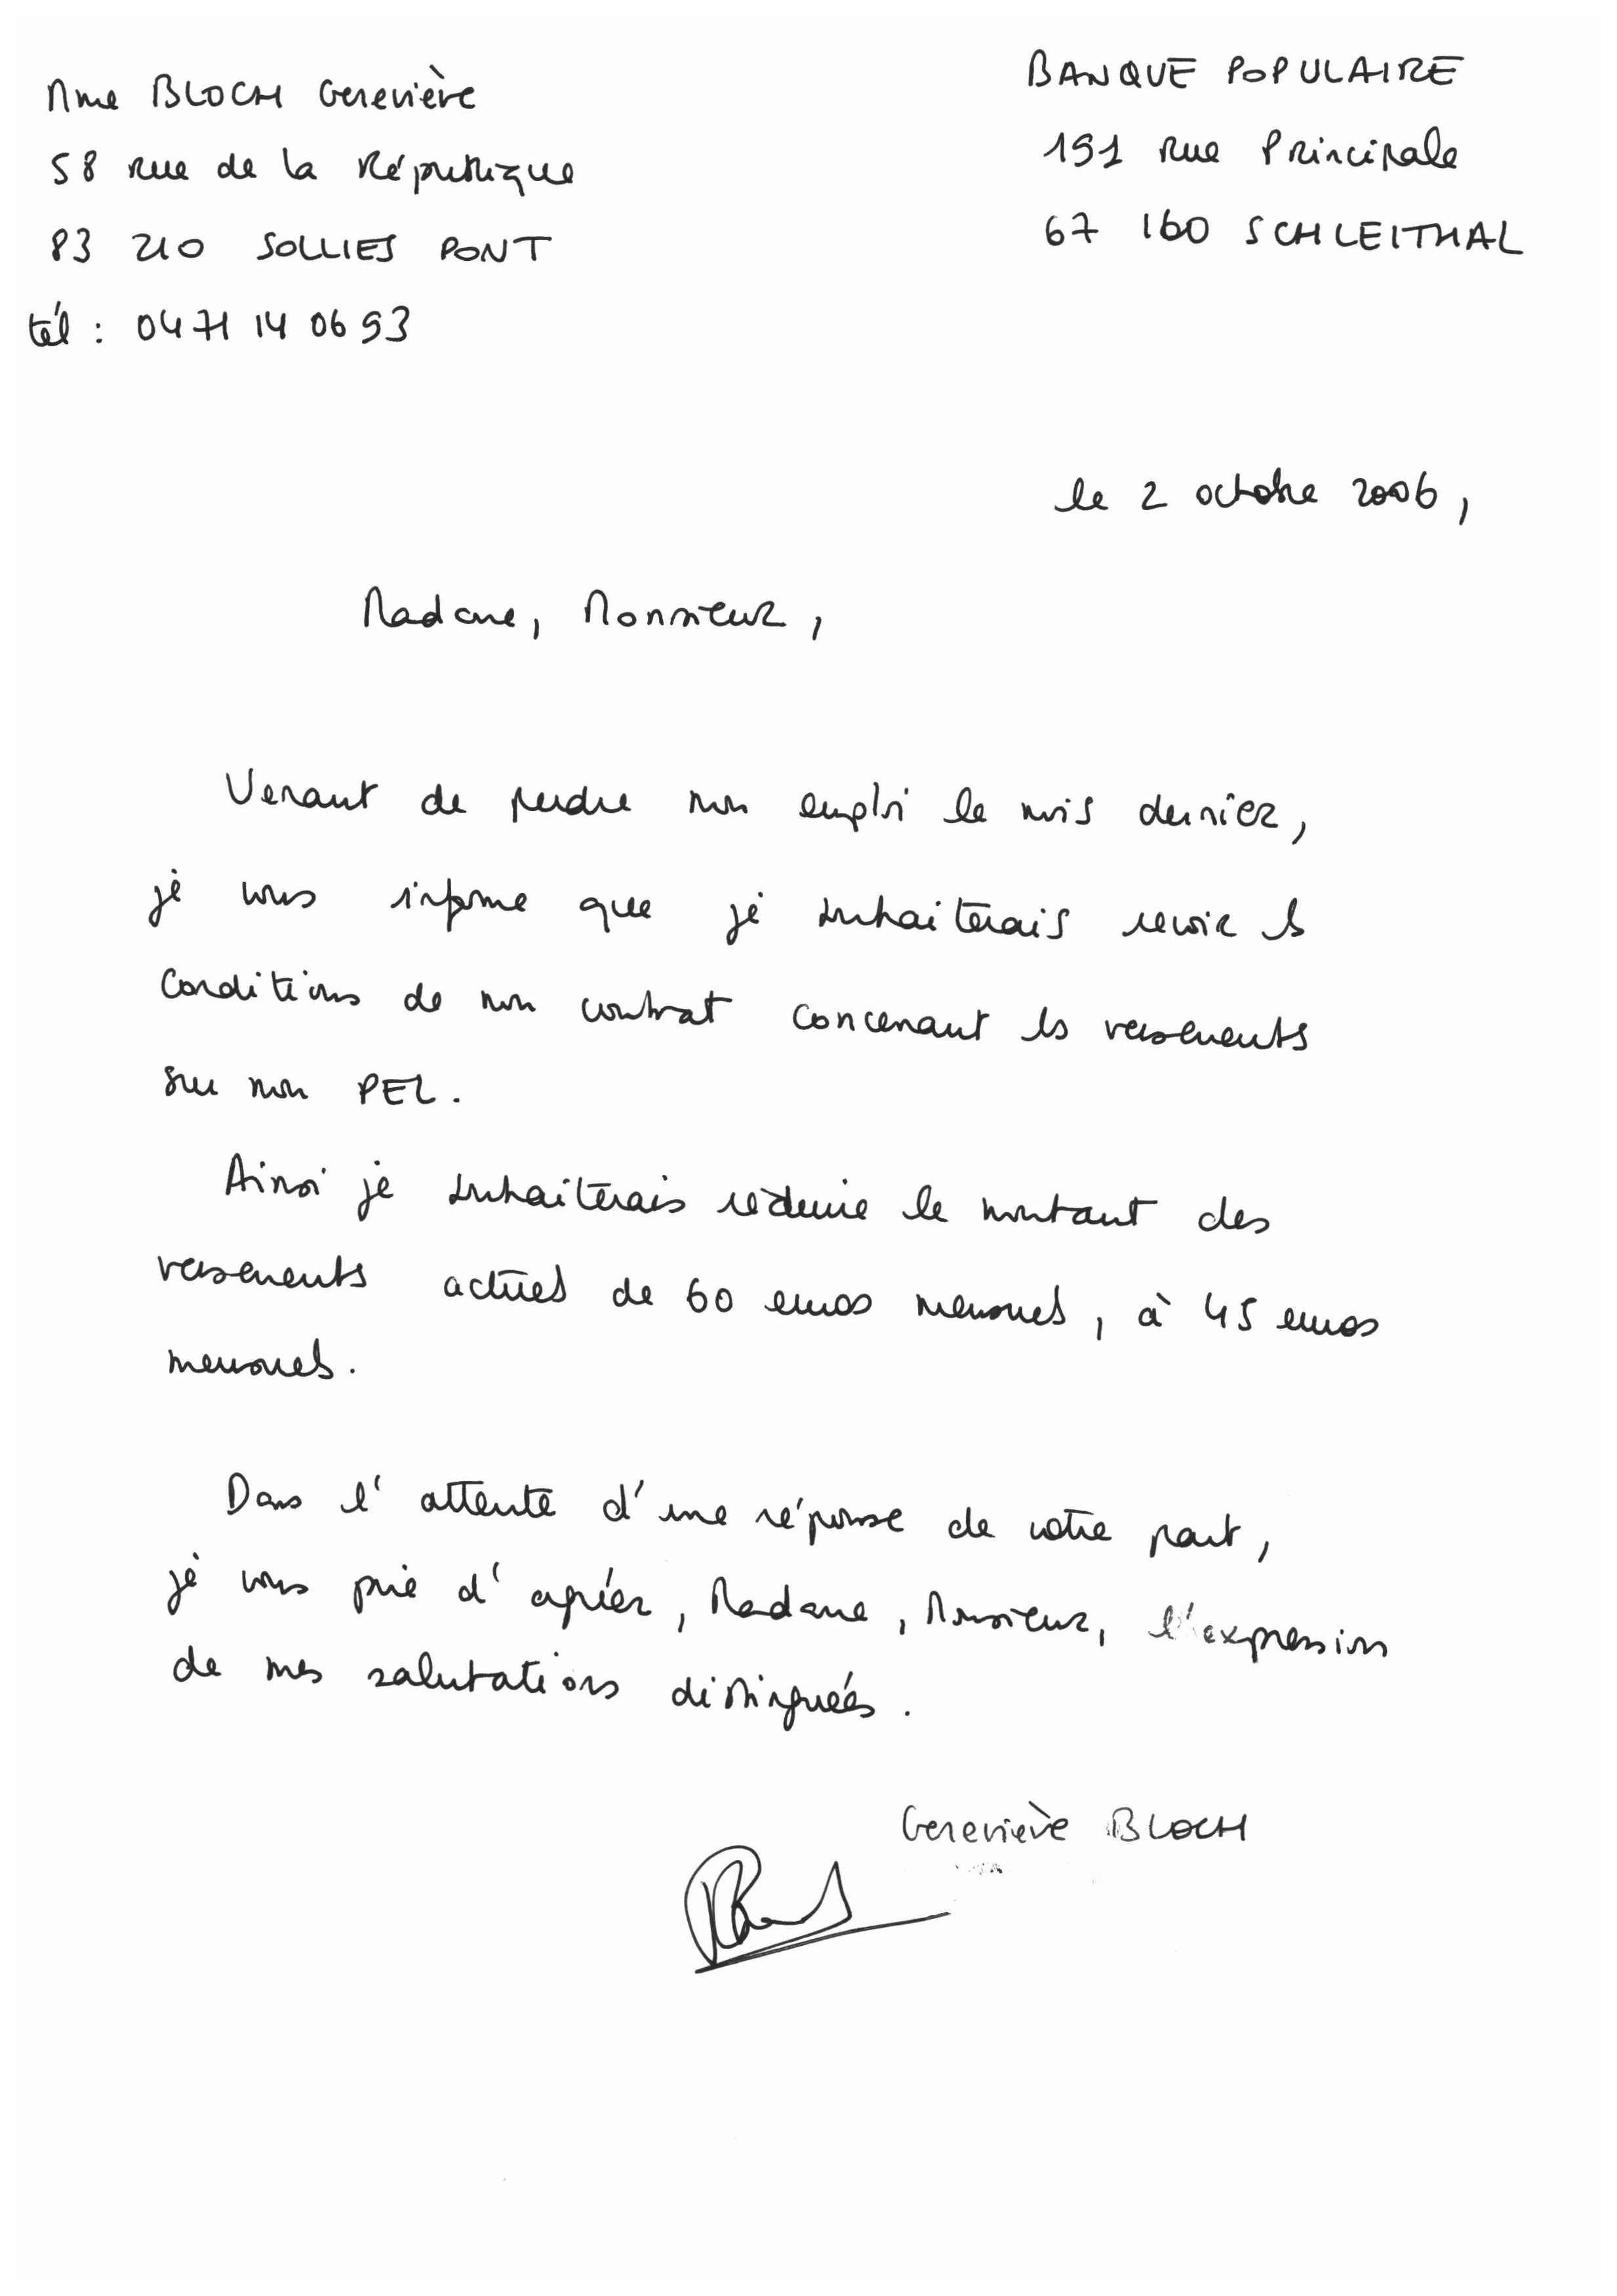 Mme BLOCH Geneviève
58 rue de la République
83 210 SOLLIES PONT
tél : 04 71 14 06 93
BANQUE POPULAIRE
191 rue Principale
67 160 SCHLEITHAL
le 2 octobre 2006,
Madame, Monsieur,
Venant de perdre mon emploi le mois dernier,
je vous informe que je souhaiterais revoir les
conditions de mon contrat concernant les versements
sur mon PEL.
Ainsi je souhaiterais réduire le montant des
versements actuels de 60 euros mensuels, à 45 euros
mensuels.
Dans l'attente d'une réponse de votre part,
je vous prie d'agréer, Madame, Monsieur, l'expression
de mes salutations distinguées.
Geneviève BLOCH